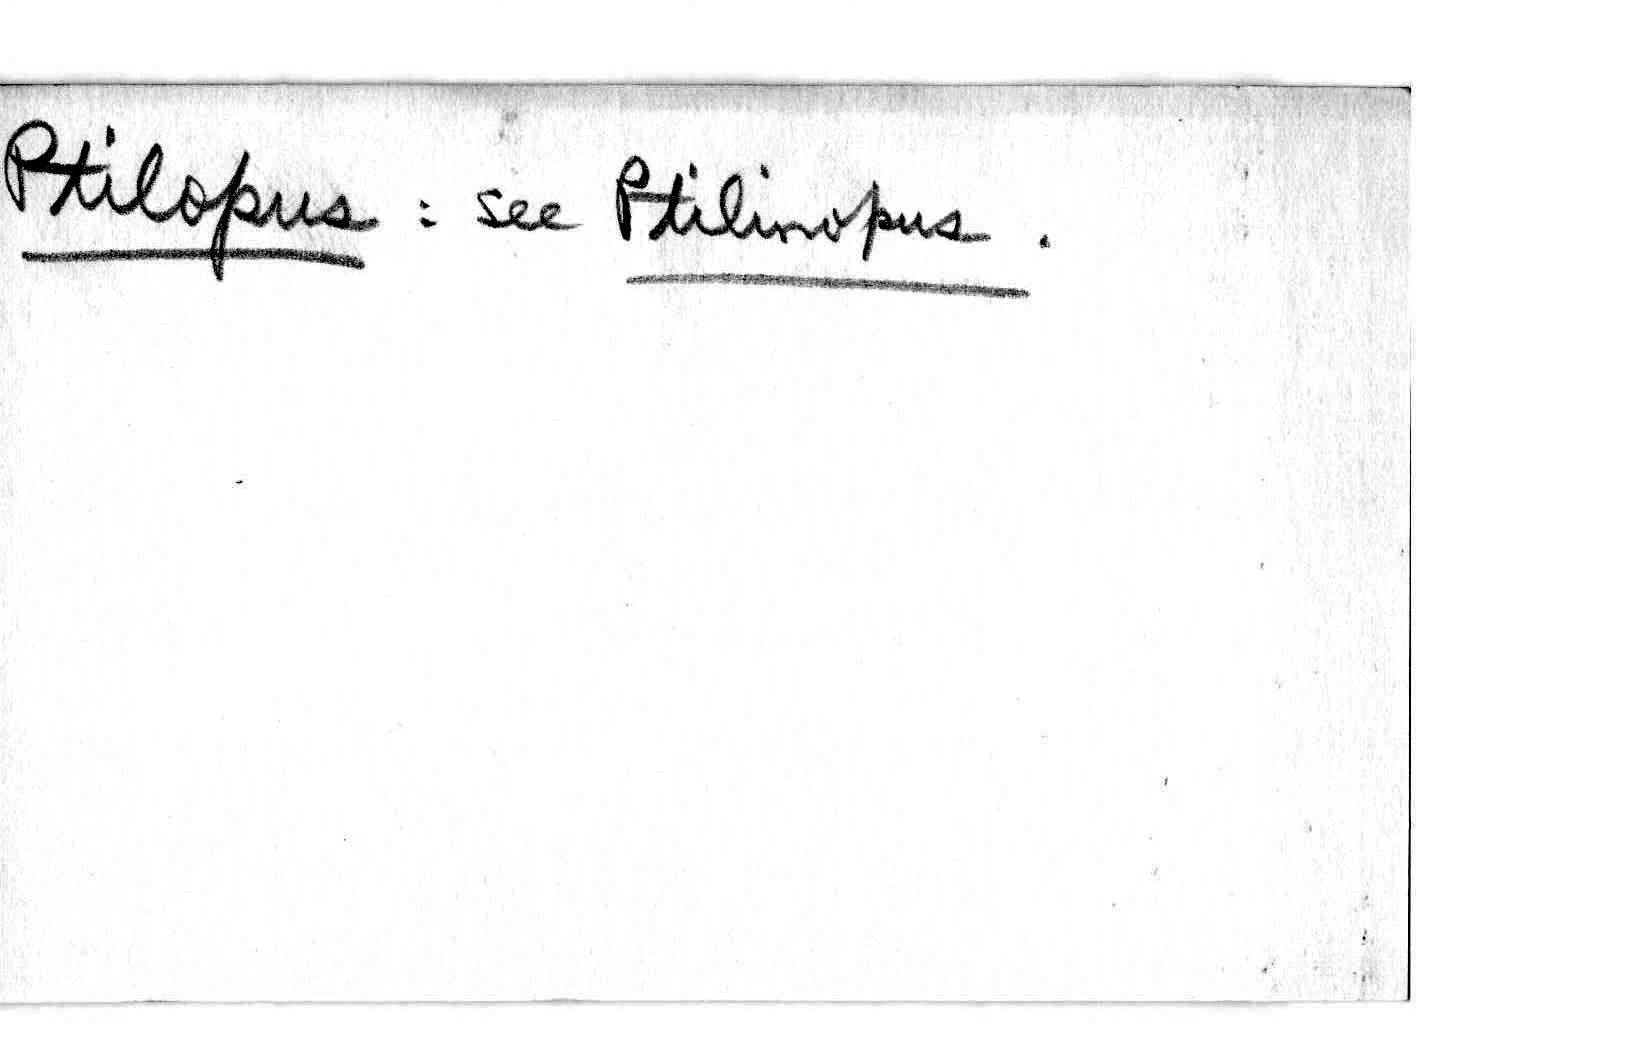 Ptilopus : see Ptilinopus .